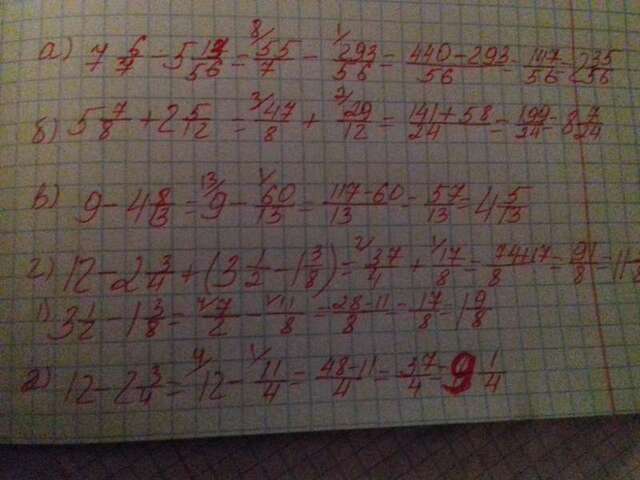 а) 7 6/7 - 5 13/56 = 8/ 55/7 - 1/ 293/56 = 440-293/56 = 147/56 = 2 35/56
б) 5 7/8 + 2 5/12 = 3/ 47/8 + 2/ 29/12 = 141+58/24 = 199/24 = 8 7/24
в) 9 - 4 8/13 = 13/ 9 - 1/ 60/13 = 117-60/13 = 57/13 = 4 5/13
г) 12 - 2 3/4 + (3 1/2 - 1 3/8) = 2/ 37/4 + 1/ 17/8 = 74+17/8 = 91/8 = 11
1) 3 1/2 - 1 3/8 = 4/ 7/2 - 1/ 11/8 = 28-11/8 = 17/8 = 1 9/8
2) 12 - 2 3/4 = 4/ 12 - 1/ 11/4 = 48-11/4 = 37/4 = 9 1/4